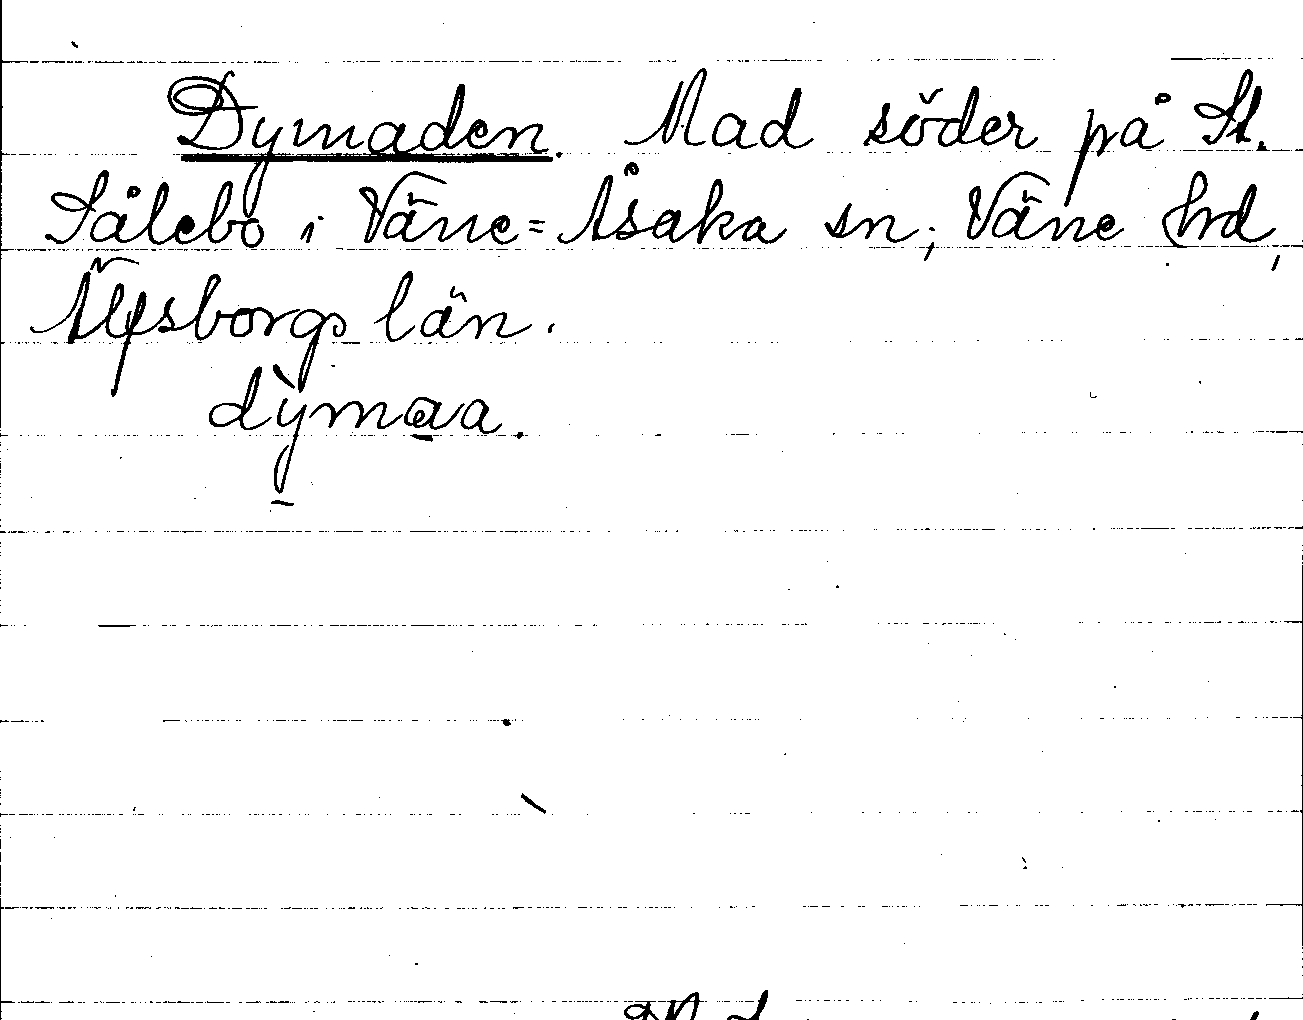 Dymaden. Mad söder på St.
Sålebo i Väne=Åsaka sn, Väne hrd,
Älfsborgs län.
dỳmaa.